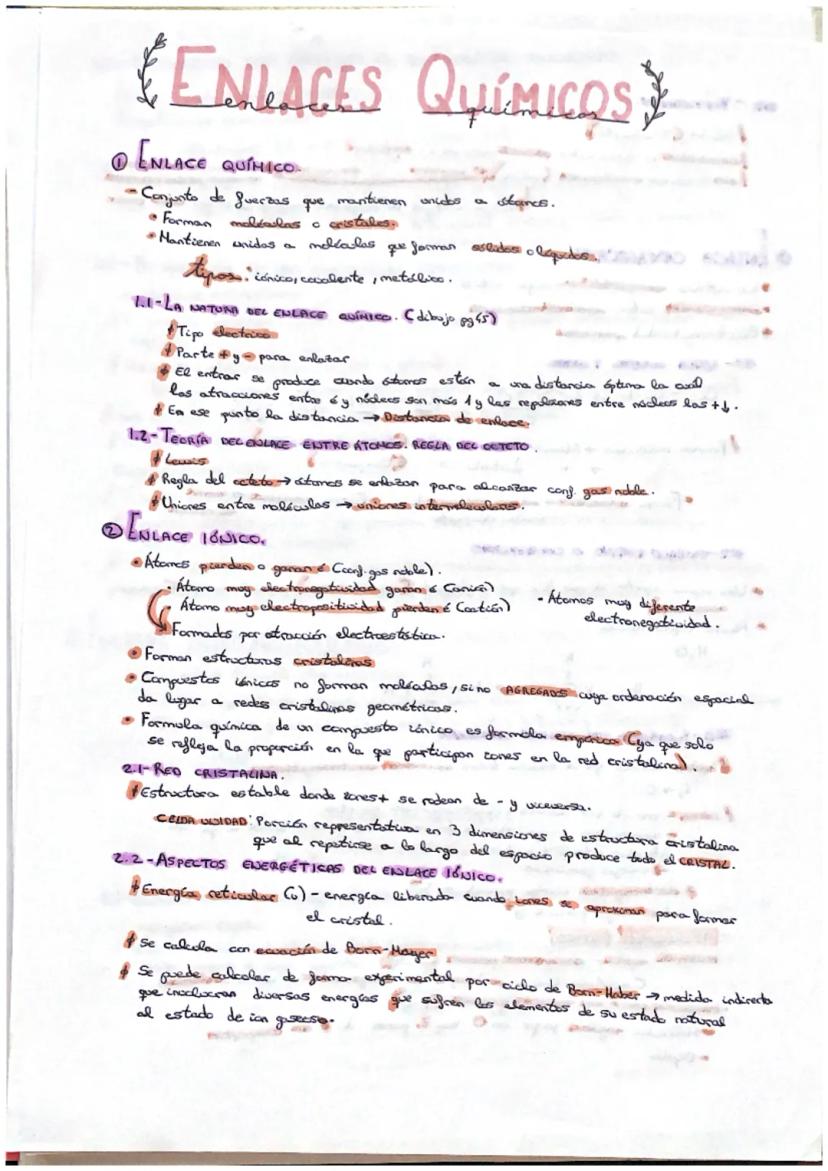 ENLACES QUÍMICOS
enlaces químicos
① ENLACE QUÍMICO.
- Conjunto de fuerzas que mantienen unidos a átomos.
• Forman moléculas o cristales.
• Mantienen unidos a moléculas que forman sólidos o líquidos.
tipos: iónico, covalente, metálico.
1.1-LA NATURA DEL ENLACE QUÍMICO. (dibujo pg 65)
Tipo electrico
Parte + y - para enlazar
El entrar se produce cuando átomos están a una distancia óptima la cual
las atracciones entre é y núcleos son más ↑ y las repulsiones entre núcleos las + ↓.
En ese punto la distancia → Distancia de enlace.
1.2-TEORÍA DEL ENLACE ENTRE ÁTOMOS. REGLA DEL OCTETO.
Lewis
Regla del octeto → átomos se enlazan para alcanzar conf. gas noble.
Uniones entre moléculas → uniones intermoleculares.
② ENLACE IÓNICO.
• Átomos pierden o ganan é (conf. gas noble).
• Átomo muy electronegatividad ganan é (anión)
Átomo muy electropositividad pierden é (catión)
- Átomos muy diferente
electronegatividad.
Formados por atracción electroestática.
• Forman estructuras cristalinas
• Compuestos iónicos no forman moléculas, sino AGREGADOS cuya ordenación espacial
da lugar a redes cristalinas geométricas.
• Formula química de un compuesto iónico es formula empírica (ya que solo
se refleja la proporción en la que participan iones en la red cristalina).
2.1-RED CRISTALINA.
Estructura estable donde iones+ se rodean de - y viceversa.
CELDA UNIDAD: Porción representativa en 3 dimensiones de estructura cristalina
que al repetirse a lo largo del espacio produce todo el CRISTAL.
2.2-ASPECTOS ENERGÉTICAS DEL ENLACE IÓNICO.
Energía reticular (U) - energía liberada cuando iones se aproximan para formar
el cristal.
Se calcula con ecuación de Born-Mayer
Se puede calcular de forma experimental por ciclo de Born-Haber → medida indirecta
que involucran diversas energías que sufren los elementos de su estado natural
al estado de ion gaseoso.